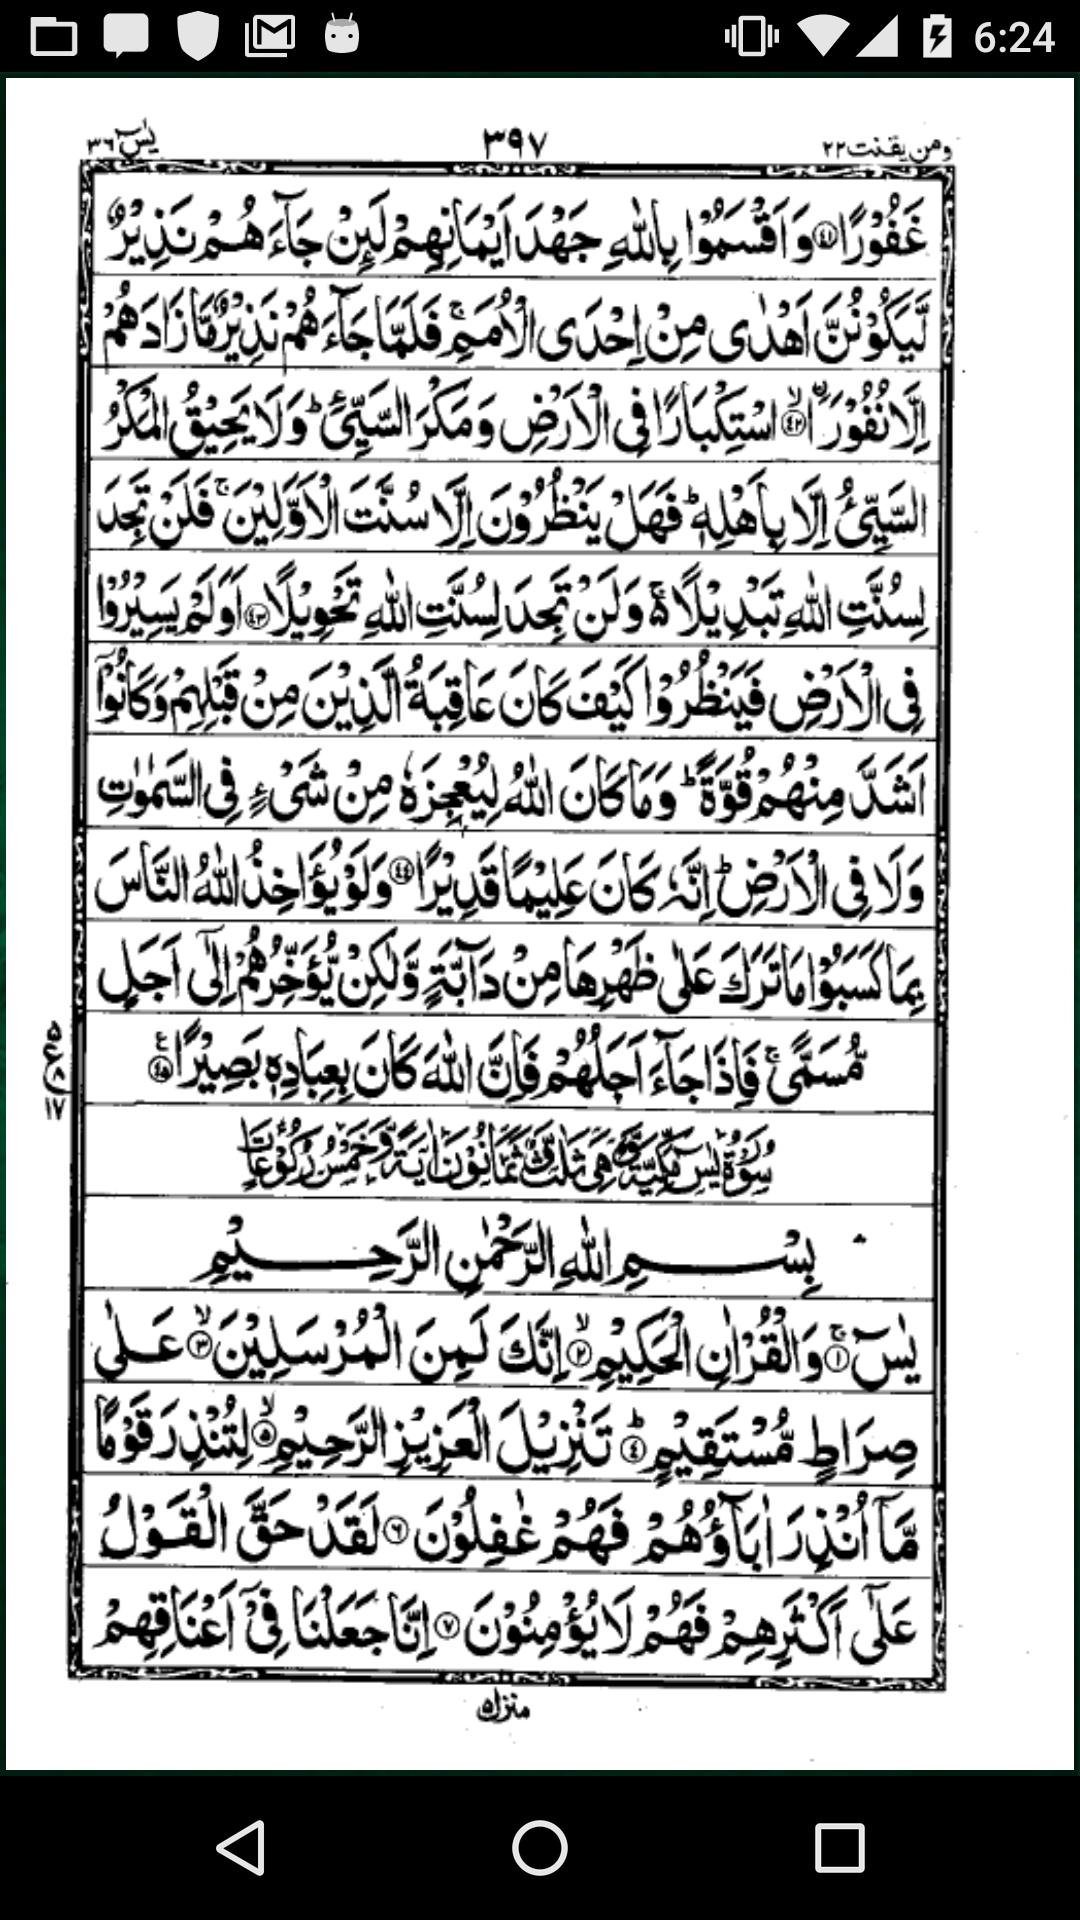 6:24
ومن یقنت٢٢ ٣٩٧ یٰسٓ٣٦
غَفُوْرًا ﴿٤١﴾ وَاَقْسَمُوْا بِاللّٰهِ جَهْدَ اَيْمَانِهِمْ لَئِنْ جَآءَهُمْ نَذِيْرٌ
لَّيَكُوْنُنَّ اَهْدٰى مِنْ اِحْدَى الْاُمَمِ ۚ فَلَمَّا جَآءَهُمْ نَذِيْرٌ مَّا زَادَهُمْ
اِلَّا نُفُوْرًا ۙ﴿٤٢﴾ اسْتِكْبَارًا فِى الْاَرْضِ وَمَكْرَ السَّيِّئِ ؕ وَلَا يَحِيْقُ الْمَكْرُ
السَّيِّئُ اِلَّا بِاَهْلِهٖ ؕ فَهَلْ يَنْظُرُوْنَ اِلَّا سُنَّتَ الْاَوَّلِيْنَ ۚ فَلَنْ تَجِدَ
لِسُنَّتِ اللّٰهِ تَبْدِيْلًا ۚ۬ وَلَنْ تَجِدَ لِسُنَّتِ اللّٰهِ تَحْوِيْلًا ﴿٤٣﴾ اَوَلَمْ يَسِيْرُوْا
فِى الْاَرْضِ فَيَنْظُرُوْا كَيْفَ كَانَ عَاقِبَةُ الَّذِيْنَ مِنْ قَبْلِهِمْ وَكَانُوْٓا
اَشَدَّ مِنْهُمْ قُوَّةً ؕ وَمَا كَانَ اللّٰهُ لِيُعْجِزَهٗ مِنْ شَىْءٍ فِى السَّمٰوٰتِ
وَلَا فِى الْاَرْضِ ؕ اِنَّهٗ كَانَ عَلِيْمًا قَدِيْرًا ﴿٤٤﴾ وَلَوْ يُؤَاخِذُ اللّٰهُ النَّاسَ
بِمَا كَسَبُوْا مَا تَرَكَ عَلٰى ظَهْرِهَا مِنْ دَآبَّةٍ وَّلٰكِنْ يُّؤَخِّرُهُمْ اِلٰٓى اَجَلٍ
مُّسَمًّى ۚ فَاِذَا جَآءَ اَجَلُهُمْ فَاِنَّ اللّٰهَ كَانَ بِعِبَادِهٖ بَصِيْرًا ﴿٤٥﴾ ع
٥
ع
١٧
سُوْرَةُ يٰسٓ مَكِّيَّةٌ وَّهِىَ ثَلٰثٌ وَّثَمَانُوْنَ اٰيَةً وَّخَمْسُ رُكُوْعَاتٍ
بِسْمِ اللّٰهِ الرَّحْمٰنِ الرَّحِيْمِ
يٰسٓ ۚ﴿١﴾ وَالْقُرْاٰنِ الْحَكِيْمِ ۙ﴿٢﴾ اِنَّكَ لَمِنَ الْمُرْسَلِيْنَ ۙ﴿٣﴾ عَلٰى
صِرَاطٍ مُّسْتَقِيْمٍ ؕ﴿٤﴾ تَنْزِيْلَ الْعَزِيْزِ الرَّحِيْمِ ۙ﴿٥﴾ لِتُنْذِرَ قَوْمًا
مَّآ اُنْذِرَ اٰبَآؤُهُمْ فَهُمْ غٰفِلُوْنَ ﴿٦﴾ لَقَدْ حَقَّ الْقَوْلُ
عَلٰٓى اَكْثَرِهِمْ فَهُمْ لَا يُؤْمِنُوْنَ ﴿٧﴾ اِنَّا جَعَلْنَا فِىْٓ اَعْنَاقِهِمْ
منزل ٥